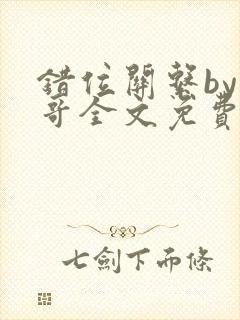 错位關繫by
哥全文免費
七劍下而條